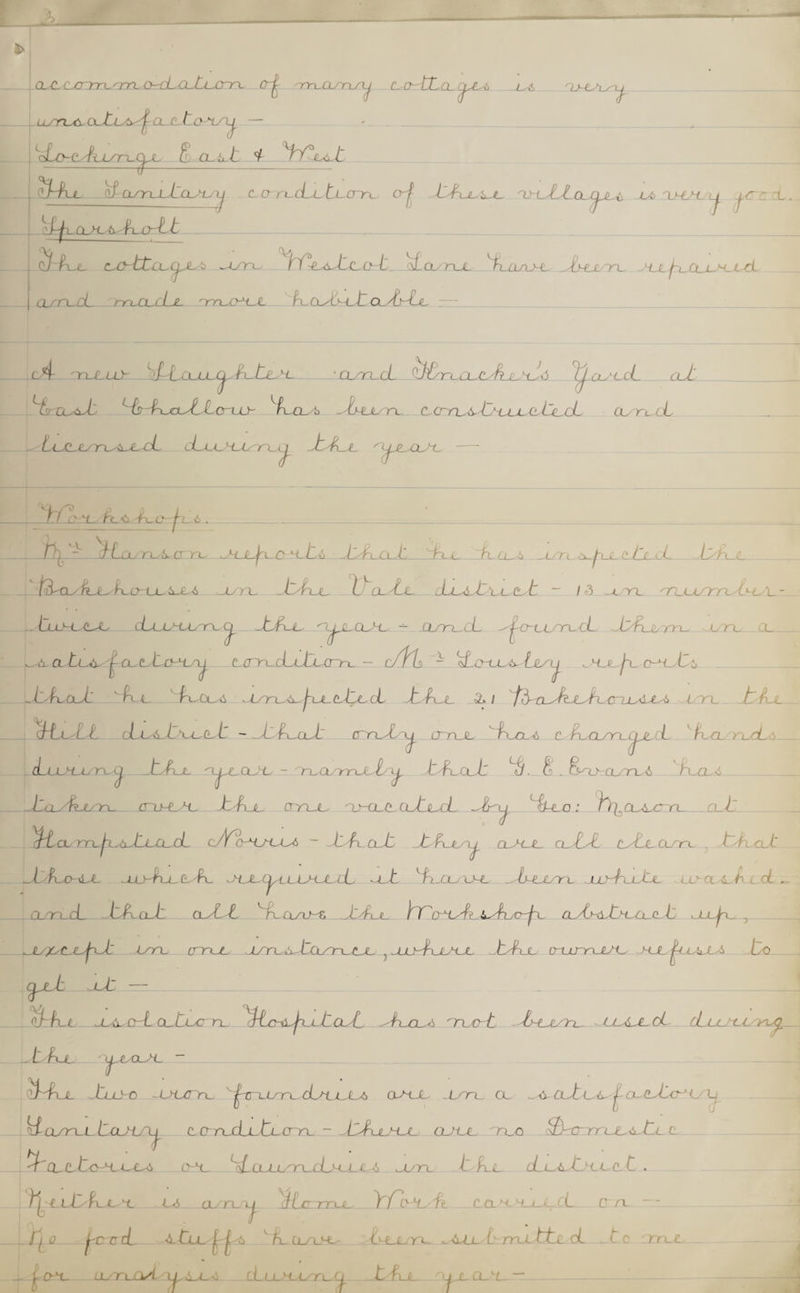 accommodation of many cottages is very
unsatisfactory —
Lockinge East & West
The Sanitary condition of these villages is very good.
Sparsholt
The cottages in Westcot Lane have been repaired
and made more habitable —
A new Slaughter and Knacker's Yard at
East Challow has been constructed and
licensed during the year —
Workshops.
Mr Hanson reports that he has inspected the
Bakehouses in the Vale district - 13 in number -
twice during the year - and found them in a
satisfactory condition - Mr Lousley reports
that he has inspected the 21 Bakehouses in the
Hill district - that only one has changed hands
during the year - namely that J. E. Evans has
taken over the one vacated by Geo: Mason at
Hampstead Norris - that they are all clean, that
those which required it have been white washed -
and that all have the Workshop abstract up,
except in one instance, where the owner refuses to
get it —
The isolation Hospital has not been used during
the year -
The two iron foundries are in a satisfactory
Sanitary condition - there are no Domestic
Factories or Laundries in the district.
Neither is any Home Work carried on —
No food stuffs have been submitted to me
for analysis during the year —